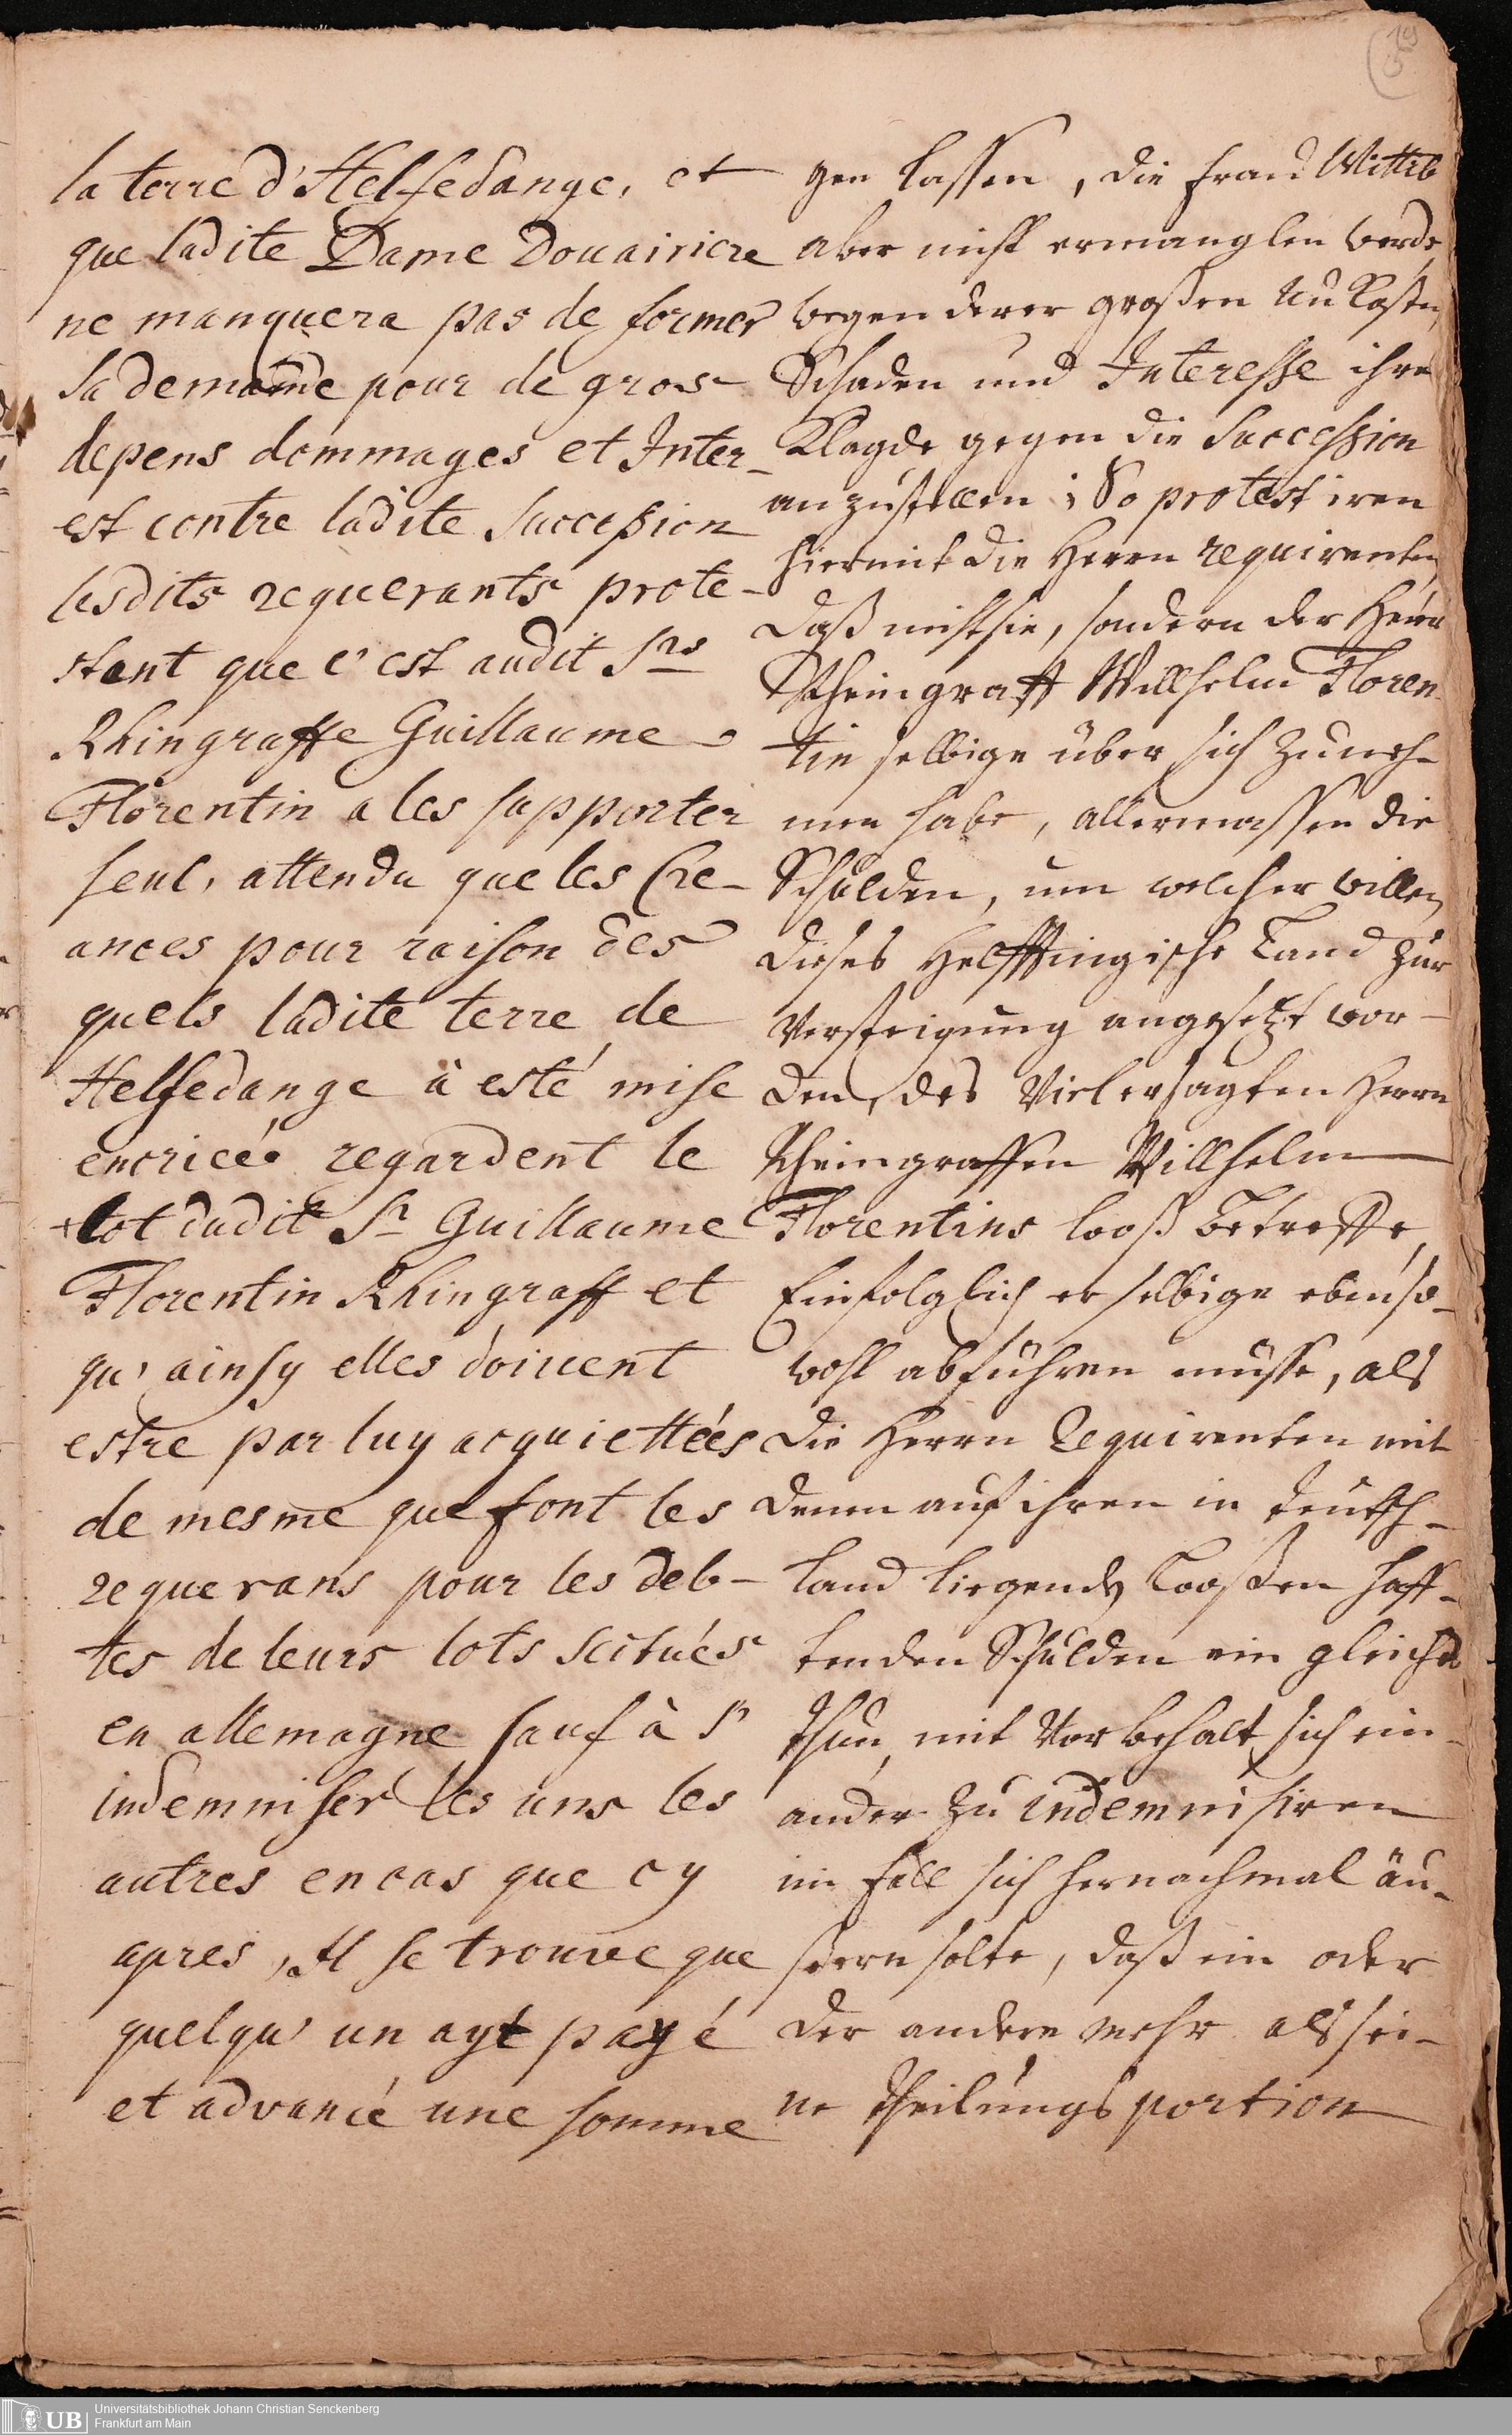 19
la terre d'Helfedange, et
que ladite Dame Douairiere
ne manquera pas de former
sa demande pour de gros
depens dommages et Inter-
est contre ladite Succession
lesdits requerants prote-
stent que c'est audit Srs
Rhingraffe Guillaume
Florentin a les supporter
seul, attendu que les Cre-
ances pour raison des
quels ladite terre de
Helfedange à esté mise
encriée regardent le
lot dudit Sr Guillaume
Florentin Rhingraff et
qu'ainsy elles doivent
estre par luy acquiettées
de mesme que font les
requerans pour les deb-
tes de leurs lots scitués
en allemagne sauf à s'
indemniser les uns les
autres encas que cy
apres, Il se trouve que
quelqu'un ayt payé
et advancé une somme
gen lassen, die fraud Wittib
aber nicht ermanglen werde
wegen derer großen Unkosten,
Schaden und Interesse ihre
Klagde gegen die Succession
anzustellen; So protestiren
hiermit die Herrn requirenten
daß nicht sie, sondern der Herr
Rheingraff Willhelm Floren-
tin selbige über sich zuneh-
men habe, allermassen die
Schulden, um welcher willen
dieses Helffingische Land zur
Versteigung angesetzt wor-
den, des Vielersagten Herrn
Rheingraffen Willhelm
Florentins looß betreffe,
Einfolglich er selbige ebenso-
wohl abführen müsse, als
die Herrn Requirenten mit
denen auf ihren in teutsch-
land liegenden Looßen haff-
tenden Schulden ein gleiches
thun, mit Vorbehalt sich ein-
ander zu indemnisiren
im fall sich hernachmal äu-
ßern solte, daß ein oder
der andere mehr als sei-
ne theilungs portion
UB
Universitätsbibliothek Johann Christian Senckenberg
Frankfurt am Main